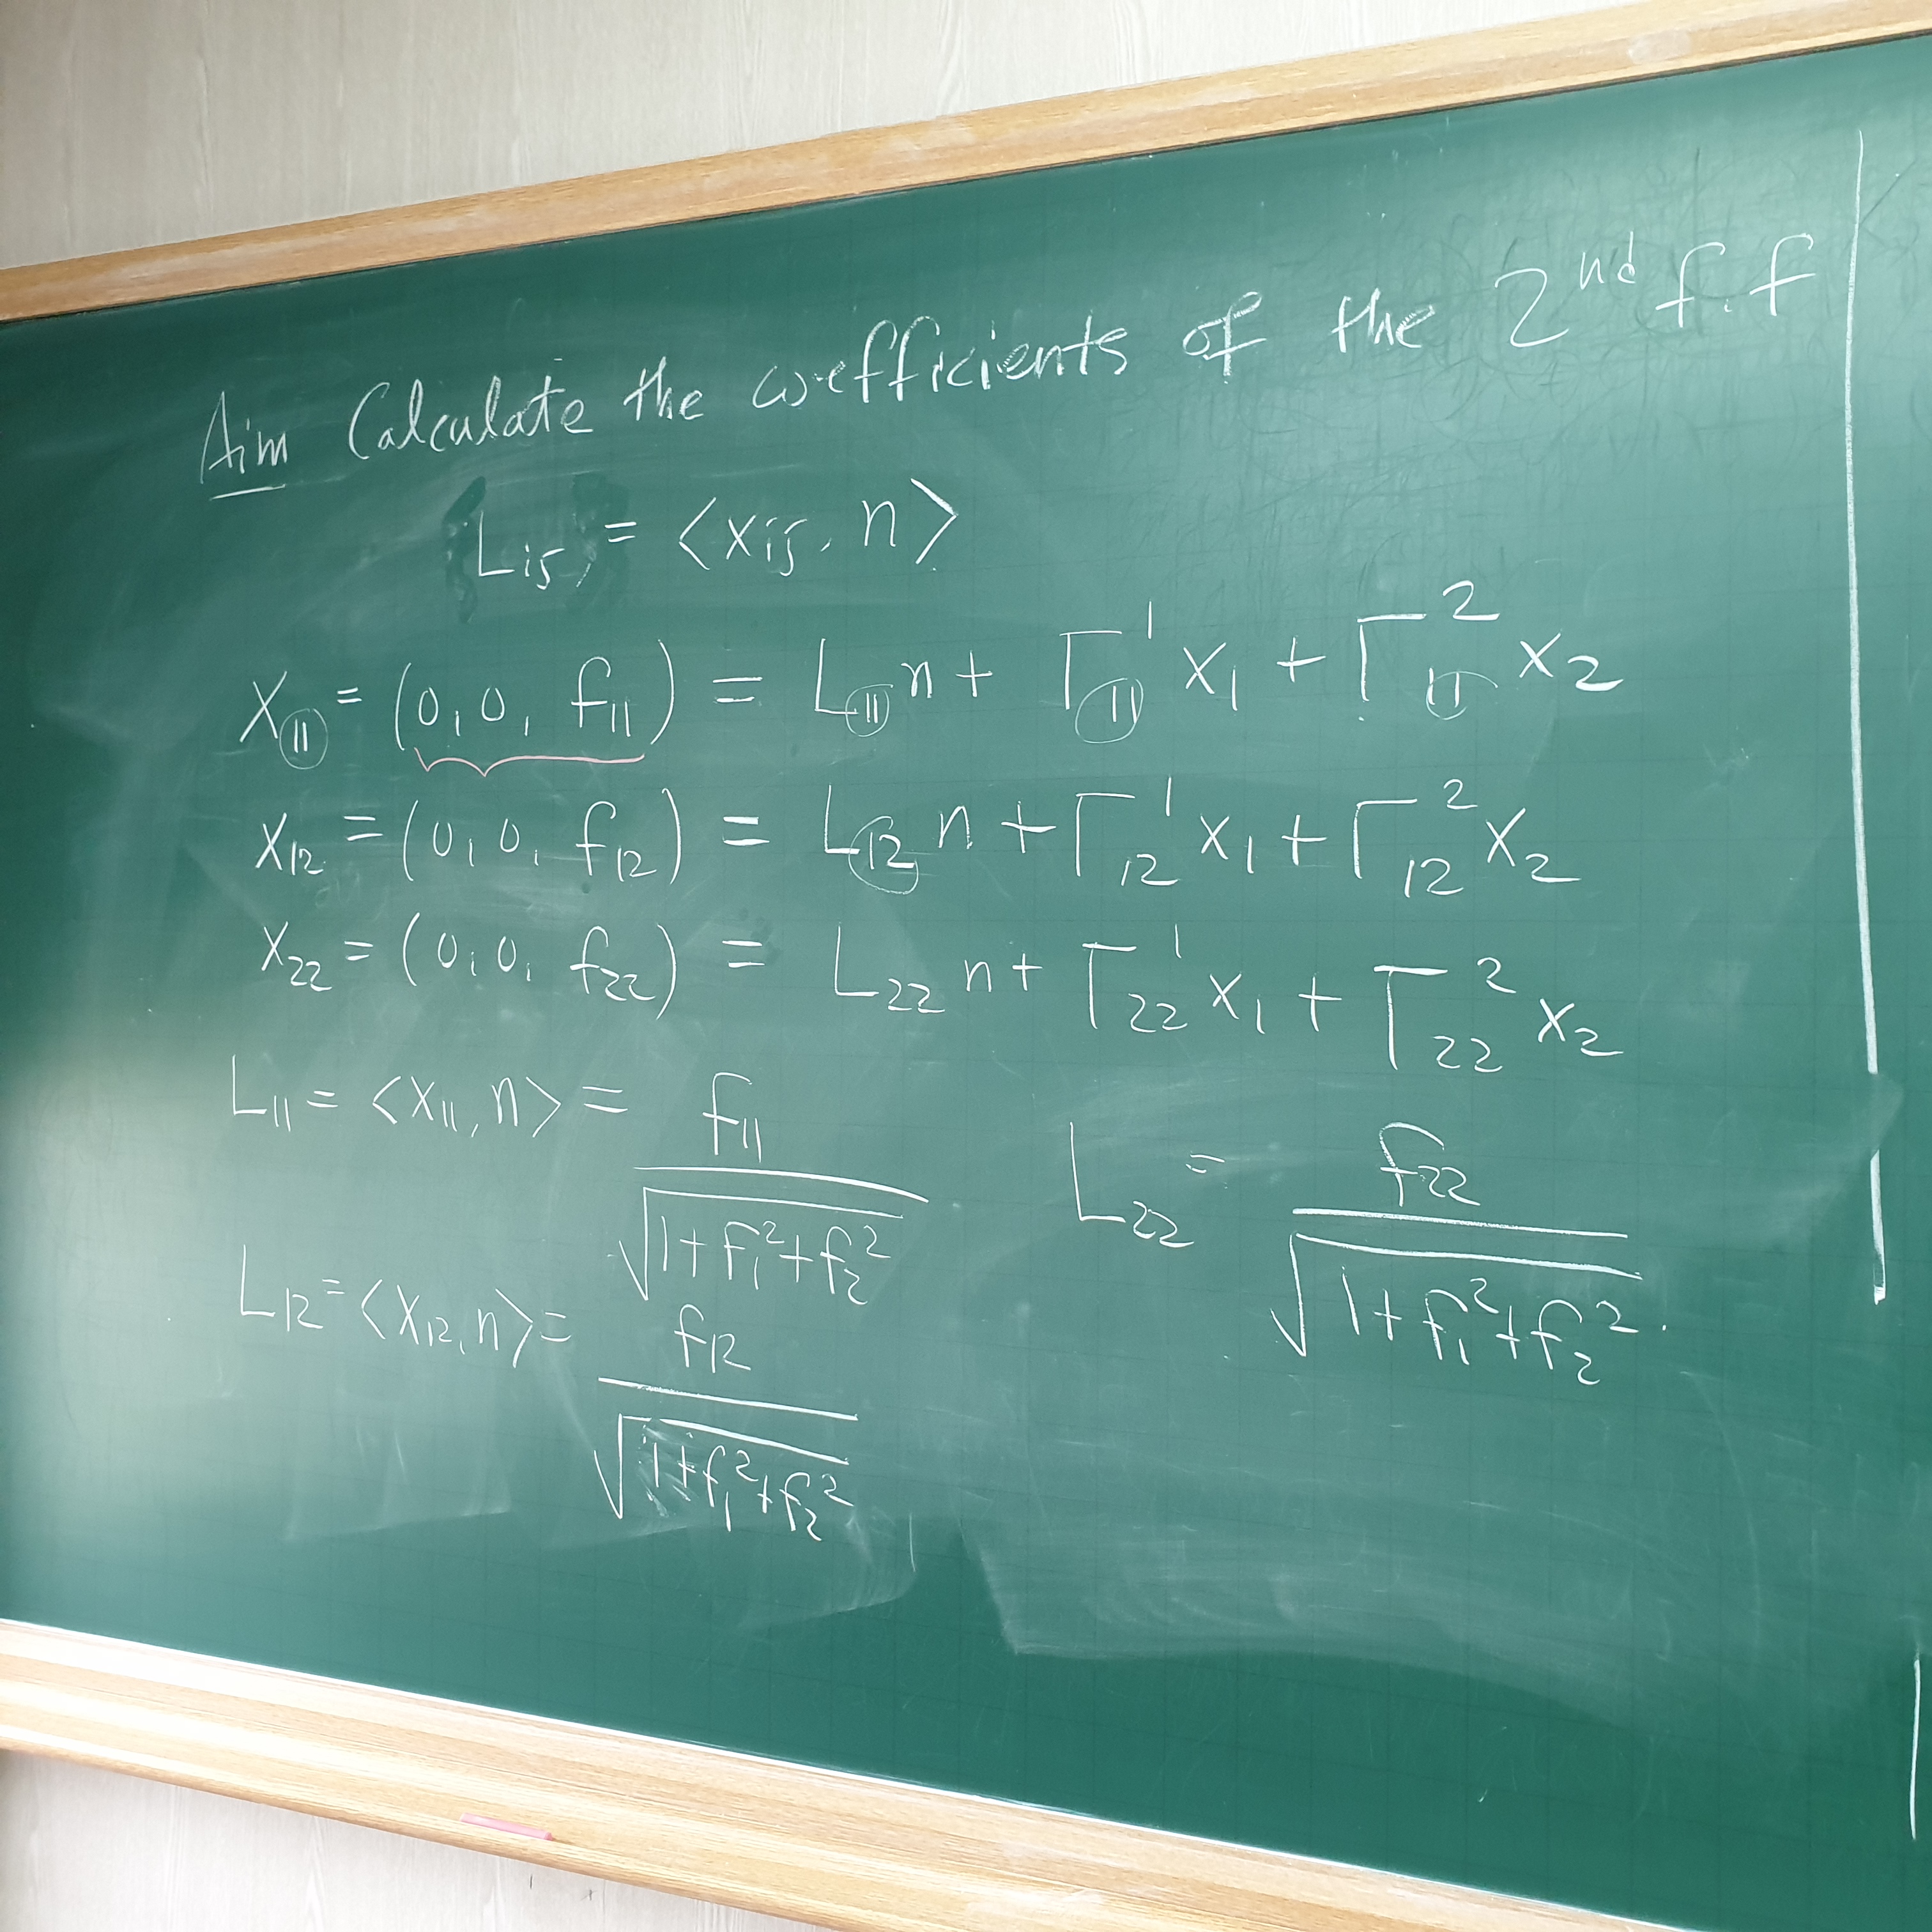 Aim Calculate the coefficients of the 2^nd f.f
L_ij = <x_ij, n>
x_11 = (0, 0, f_11) = L_11 n + Γ_11^1 x_1 + Γ_11^2 x_2
x_12 = (0, 0, f_12) = L_12 n + Γ_12^1 x_1 + Γ_12^2 x_2
x_22 = (0, 0, f_22) = L_22 n + Γ_22^1 x_1 + Γ_22^2 x_2
L_11 = <x_11, n> = f_11 / √(1 + f_1^2 + f_2^2)
L_12 = <x_12, n> = f_12 / √(1 + f_1^2 + f_2^2)
L_22 = f_22 / √(1 + f_1^2 + f_2^2).